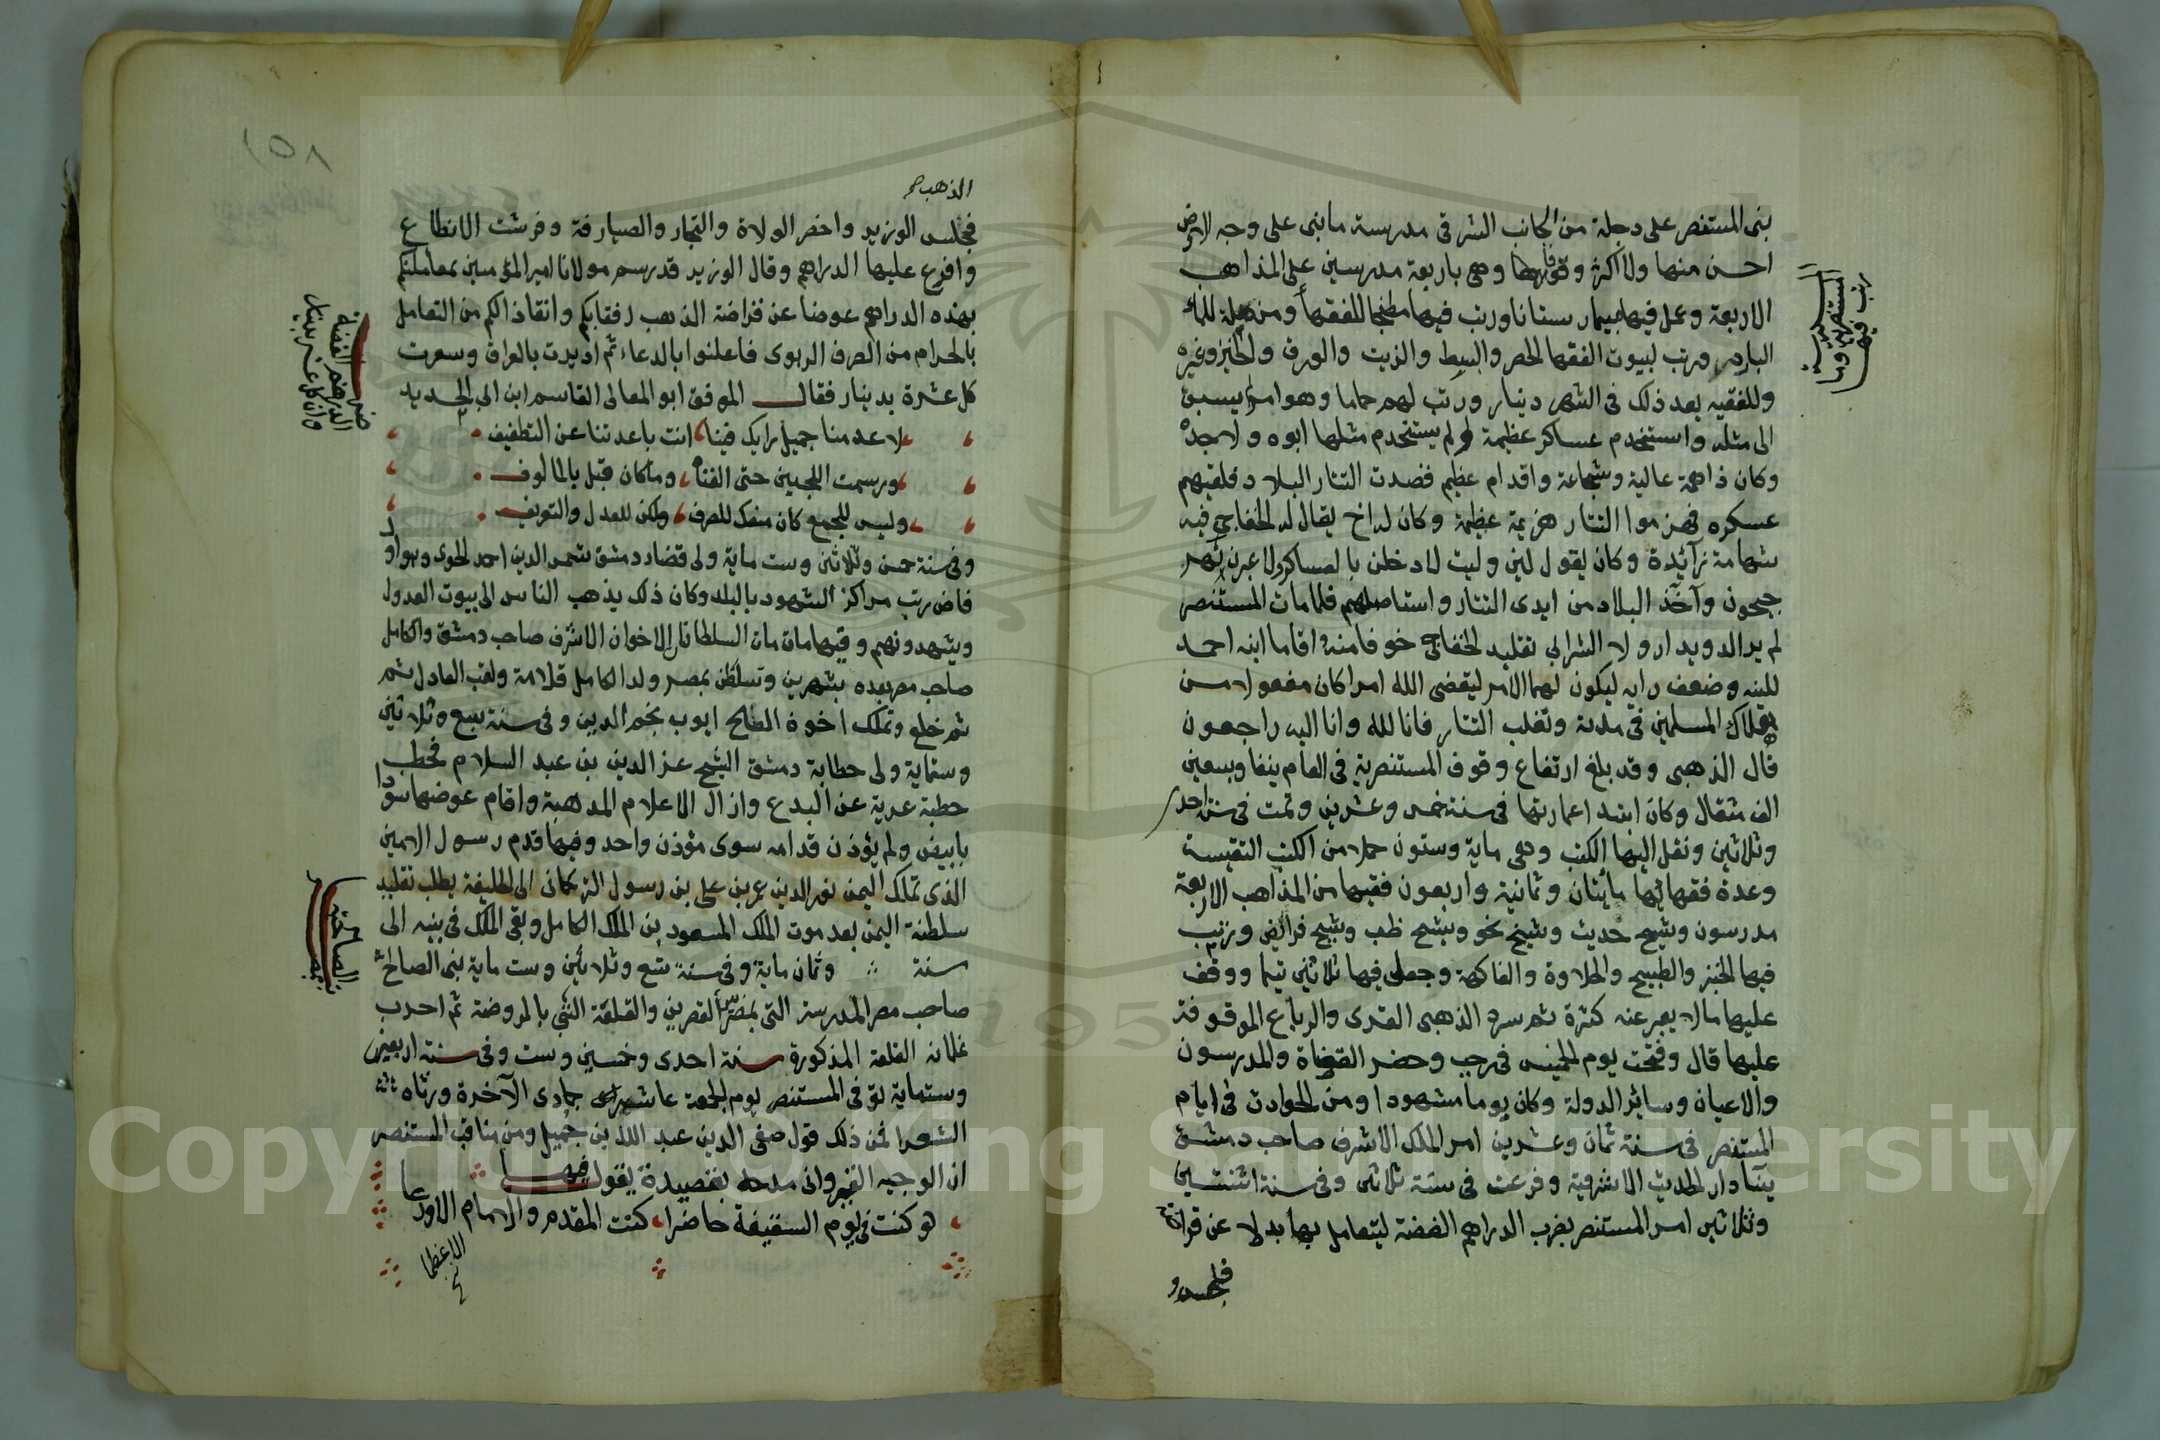 بنى المستنصر على دجلة من الجانب الشرقي مدرسة ما بنى على وجه الارض
احسن منها ولا اكثر وقوفا وهي باربعة مدرسين على المذاهب
الاربعة وعمل فيها بيمارستانا ورتب فيها مطبخا للفقهاء ومزملة للماء
البارد ورتب لبيوت الفقها الحصر والبسط والزيت والورق والخبز وغيره
وللفقيه بعد ذلك في الشهر دينار ورتب لهم حماما وهو امر لم يسبق
الى مثله واستخدم عساكر عظيمة لم يستخدم مثلها ابوه ولا جده
وكان ذا همة عالية وشجاعة واقدام عظيم قصدت التتار البلاد فلقيهم
عسكره فهزموا التتار هزيمة عظيمة وكان له اخ يقال له الخفاجي فيه
شهامة زائدة وكان يقول لين وليت لادخلن بالعساكر ولاعبرن نهر
جيحون وآخذ البلاد من ايدى التتار واستاصلهم فلما مات المستنصر
لم ير الدويدار ولا الشرابي تقليد الخفاجي خوفا منه اقاما ابنه احمد
للينه وضعف رايه ليكون لهما الامر ليقضى الله امرا كان مفعولا من
هلاك المسلمين في مدته وتغلب التتار فانا لله وانا اليه راجعون
قال الذهبى وقد بلغ ارتفاع وقوف المستنصرية في العام ينفا وسبعين
الف مثقال وكان ابتدا عمارتها في سنة خمس وعشرين وتمت في سنة احد
وثلاثين ونقل اليها الكتب وهى ماية وستون حملا من الكتب النفيسة
وعدة فقهائها مأيتان وثمانية واربعون فقيها من المذاهب الاربعة
مدرسون وشيخ حديث وشيخ نحو وشيخ طب وشيخ فرائض ورتب
فيها الخبز والطبيخ والحلاوة والفاكهة وجعل فيها ثلاثين يتيما ووقف
عليها مالا يعبر عنه كثرة ثم سرد الذهبى القرى والرباع الموقوفة
عليها قال وفتحت يوم الخميس في رجب وحضر القضاة والمدرسون
والاعيان وسائر الدولة وكان يوما مشهودا ومن الحوادث في ايام
المستنصر في سنة ثمان وعشرين امر الملك الاشرف صاحب دمشق
ببنآ دار الحديث الاشرفية وفرغت في سنة ثلاثين وفي سنة اثنتين
وثلاثين امر المستنصر بضرب الدراهم الفضة ليتعامل بها بدلا عن قراضة
فجلس
المستنصرية وما
رتب فيها
١٥٨
الذهب صح
فجلس الوزير واحضر الولاة والتجار والصيارفة وفرشت الانطاع
وافرغ عليها الدراهم وقال الوزير قد رسم مولانا امير المؤمنين بمعاملتكم
بهذه الدراهم عوضا عن قراضة الذهب رفقا بكم وانقاذا لكم من التعامل
بالحرام من الصرف الربوى فاعلنوا بالدعاء ثم اديرت بالعراق وسعرت
كل عشرة بدينار فقال الموفق ابو المعالى القاسم ابن ابى الحديد
لا عدمنا جميل رايك فينا، انت باعدتنا عن التطفيف
ورسمت اللجين حتى الفناه، وما كان قبل بالمالوف
وليس للجمع كان منعك للصرف، ولكن للعدل والتعريف
وفي سنة خمس وثلاثين وست ماية ولى قضاء دمشق شمس الدين احمد الخوى وهو اول
قاض رتب مراكز الشهود بالبلد وكان ذلك يذهب الناس الى بيوت العدول
ويشهدونهم وفيها مات مات السلطانان الاخوان الاشرف صاحب دمشق والكامل
صاحب مصر بعده بشهرين وتسلطن بمصر ولد الكامل قلامة ولقب العادل ثم
ثم خلع وتملك اخوه الصالح ايوب نجم الدين وفي سنة سبع وثلاثين
وستماية ولى خطابة دمشق الشيخ عز الدين بن عبد السلام فخطب
خطبة عرية عن البدع وازال الاعلام المذهبة واقام عوضها سودا
بابيض ولم يؤذن قدامه سوى مؤذن واحد وفيها قدم رسول الامين
الذى تملك اليمن نور الدين عمر بن على بن رسول التركمانى الى الخليفة يطلب تقليد
سلطنة اليمن بعد موت الملك المسعود بن الملك الكامل وبقى الملك في بنيه الى
سنة وثمان ماية وفي سنة تسع وثلاثين وست ماية بنى الصالح
صاحب مصر المدرسة التى بمصر بين القصرين والقلعة التى بالروضة ثم اخرب
غلمانه القلعة المذكورة سنة احدى وخمسين وست وفي سنة اربعين
وستماية توفى المستنصر يوم الجمعة عاشر جمادى الآخرة ورثاه
الشعرا فمن ذلك قول صفى الدين عبد الله بن جميل ومن مناقب المستنصر
ان الوجيه القيروانى مدحه بقصيدة يقول فيها
لو كنت في يوم السقيفة حاضرا، كنت المقدم والامام الاورعا
ضرب الدراهم الفضة
وان كل عشر بدينار
بنى الصالحية
بمصر
Copyright © King Saud University
1957